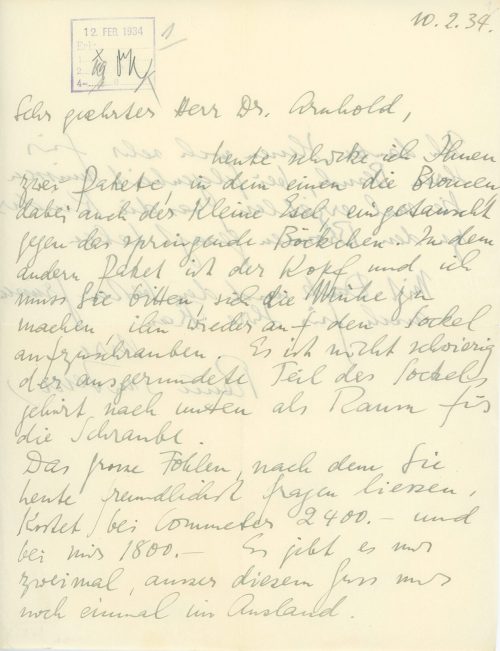 10.2.34.
12. FEB. 1934
Sehr geehrter Herr Dr. Arnhold,
heute schicke ich Ihnen
zwei Pakete, in dem einen die Broncen
dabei auch der Kleine Esel, eingetauscht
gegen das springende Böckchen. In dem
andern Paket ist der Kopf und ich
muss Sie bitten sich die Mühe zu
machen ihn wieder auf den Sockel
aufzuschrauben. Es ist nicht schwierig
der ausgerundete Teil des Sockels
gehört nach unten als Raum für
die Schraube.
Das grosse Fohlen, nach dem Sie
heute freundlichst fragen liessen,
kostet bei Commeter 2400.- und
bei mir 1800.- Es gibt es nur
zweimal, ausser diesem Guss nur
noch einmal im Ausland.